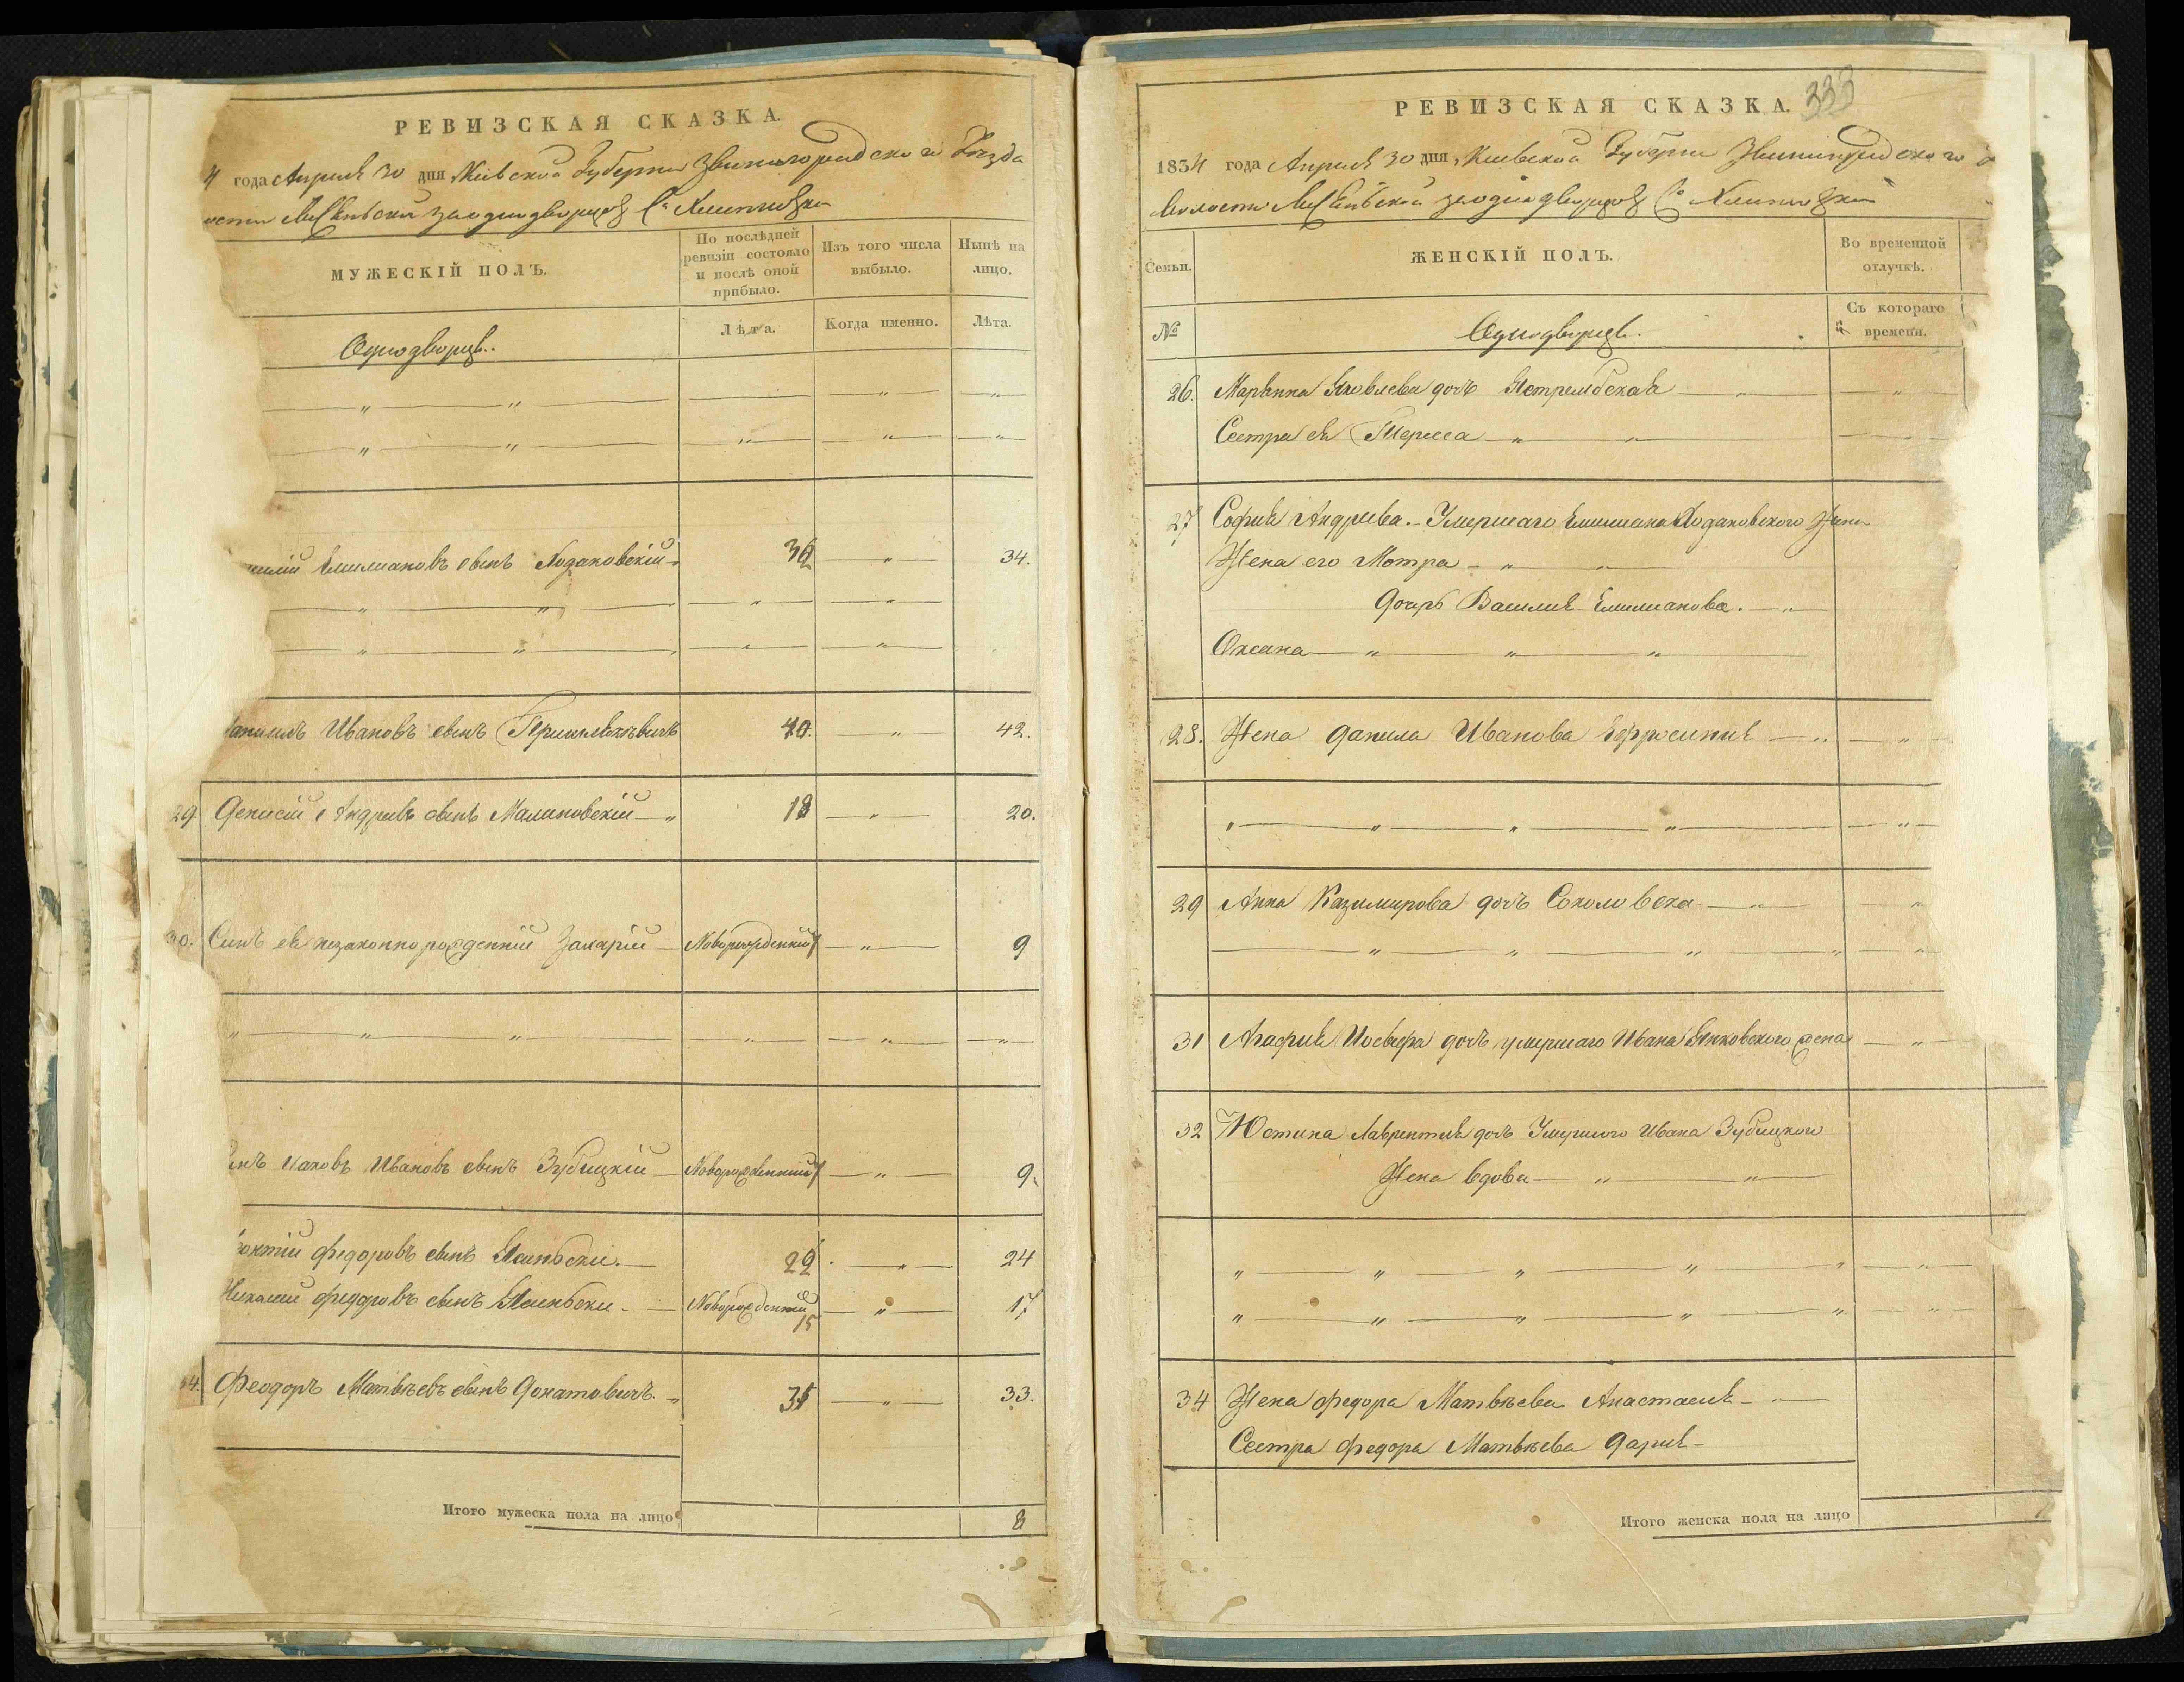 РЕВИЗСКАЯ СКАЗКА.
4 года Апреля 30 дня Киевской Губернии Звенигородского Уезда
С.
МУЖЕСКІЙ ПОЛЪ.
По послѣдней ревизіи состояло и послѣ оной прибыло.
Изъ того числа выбыло.
Нынѣ на лицо.
Лѣта.
Когда именно.
Лѣта.
Однодворцы.
Емилиановъ сынъ Ходаковскій 34.
Ивановъ сынъ 40. 42.
29 Денисій Андреевъ сынъ Малиновскій 18 20.
30. Сынъ ея незаконнорожденній Захарій Новорожденний 9
Яковъ Ивановъ сынъ Зубицкій Новорожденний 9.
Федоровъ сынъ 22 24
Николай Федоровъ сынъ Новорожденний 15 17
34. Феодоръ Матвѣевъ сынъ Донатовичъ 33.
Итого мужеска пола на лицо 8
РЕВИЗСКАЯ СКАЗКА.
333
1834 года Апреля 30 дня, Киевской Губерни Звенигородского
Волости
Семьи.
ЖЕНСКІЙ ПОЛЪ.
Во временной отлучкѣ.
№
Однодворцы.
Съ котораго времени.
26. Марьянна Яковлева дочь Ястрембская
Сестра ея Тереса
27 Софія Андреева. Умершаго Емилиана Ходаковского Жена
Жена его Мотра
Дочерь Василия Емилианова.
Оксана
28. Жена Данила Иванова Ефросиния
29 Анна Казимирова дочь Соколовска
31 Агафия Иосифа дочь умершаго Ивана Янковского жена
32 Юстина Лаврентия дочь Умершого Ивана Зубицкого
Жена вдова
34 Жена Федора Матвѣева Анастасия
Сестра Федора Матвѣева Дария
Итого женска пола на лицо